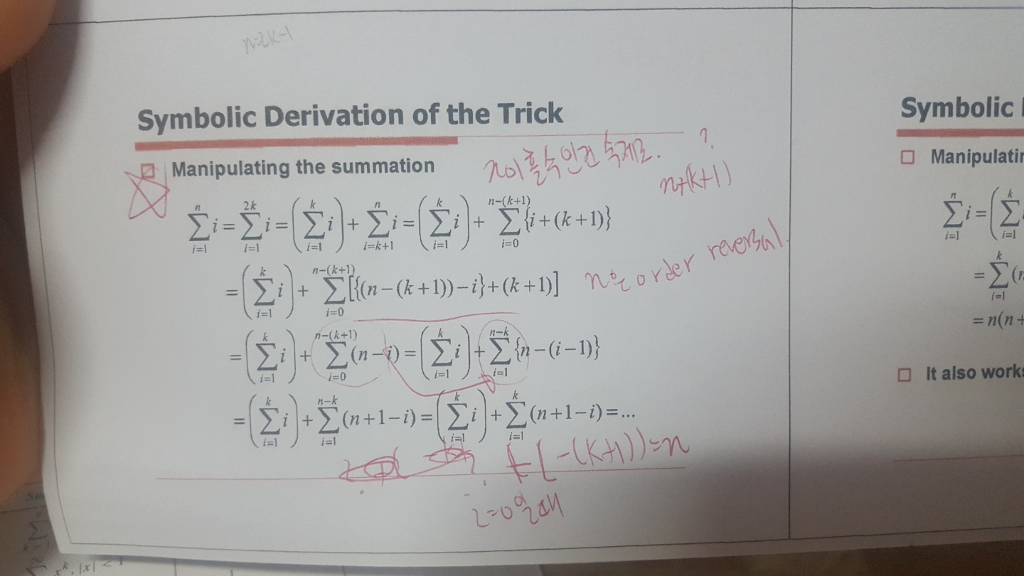 n=2k-1
Symbolic Derivation of the Trick
Manipulating the summation
n이 홀수인건 숙제로. ?
n+(k+1)
\sum_{i=1}^{n} i = \sum_{i=1}^{2k} i = \left(\sum_{i=1}^{k} i\right) + \sum_{i=k+1}^{n} i = \left(\sum_{i=1}^{k} i\right) + \sum_{i=0}^{n-(k+1)} \{i+(k+1)\}
= \left(\sum_{i=1}^{k} i\right) + \sum_{i=0}^{n-(k+1)} [\{(n-(k+1))-i\}+(k+1)]
order reversal.
= \left(\sum_{i=1}^{k} i\right) + \sum_{i=0}^{n-(k+1)} (n-i) = \left(\sum_{i=1}^{k} i\right) + \sum_{i=1}^{n-k} \{n-(i-1)\}
= \left(\sum_{i=1}^{k} i\right) + \sum_{i=1}^{n-k} (n+1-i) = \left(\sum_{i=1}^{k} i\right) + \sum_{i=1}^{k} (n+1-i) = ...
-(k+1))=n
i=0일때
Symbolic
Manipulatin
\sum_{i=1}^{n} i = \left(\sum_{i=1}^{k}
= \sum_{i=1}^{k} (n
= n(n+
It also works